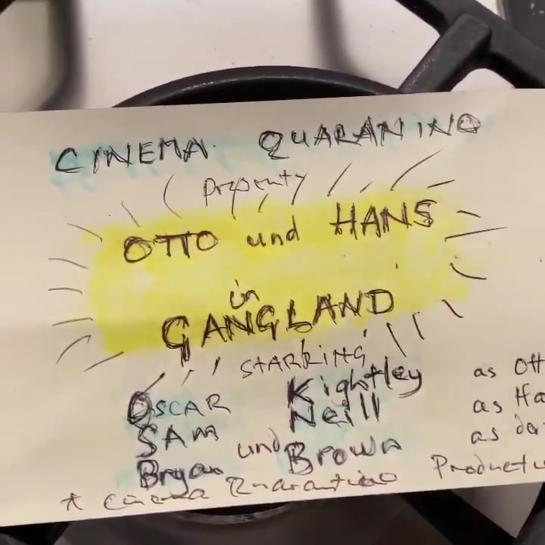 CINEMA QUARANINO
OTTO und HANS
in
GANGLAND
STARRING
OSCAR Kightley as Ott
SAM Neill as Ha
Bryan und Brown as der
* cinema Quarantino Product